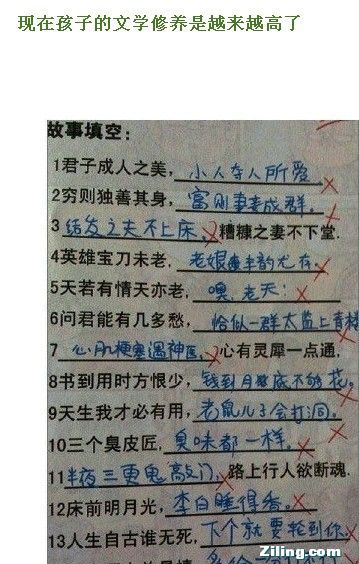 现在孩子的文学修养是越来越高了
故事填空：
1君子成人之美，小人夺人所爱
2穷则独善其身，富则妻妾成群。
3 结发之夫不上床，糟糠之妻不下堂.
4英雄宝刀未老，老娘风韵尤存。
5天若有情天亦老，噢，老天！
6问君能有几多愁，恰似一群太监上青楼
7 心肌梗塞遇神医，心有灵犀一点通，
8书到用时方恨少，钱到月底不够花。
9天生我才必有用，老鼠儿子会打洞。
10三个臭皮匠，臭味都一样。
11半夜三更鬼敲门，路上行人欲断魂.
12床前明月光，李白睡得香。
13人生自古谁无死，下个就要轮到你。
Ziling.com